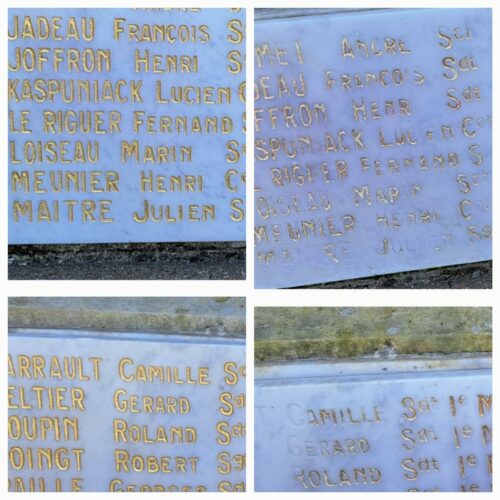 JADEAU FRANÇOIS S
JOFFRON HENRI S
KASPUNIACK LUCIEN C
LE RIGUER FERNAND S
LOISEAU MARIN S
MEUNIER HENRI C
MAITRE JULIEN S
MET ANDRE Sgt
DEAU FRANÇOIS Sgt
OFFRON HENRI Sgt
ASPUNIACK LUCIEN C
E RIGUER FERNAND S
OISEAU MARIN Sgt
MEUNIER HENRI C
MAITRE JULIEN Sgt
ARRAULT CAMILLE S
ELTIER GERARD Sgt
OUPIN ROLAND Sgt
OINGT ROBERT Sgt
AILLE GEORGES Sgt
T CAMILLE Sgt 1e M
GERARD Sgt 1e
ROLAND Sgt 1e